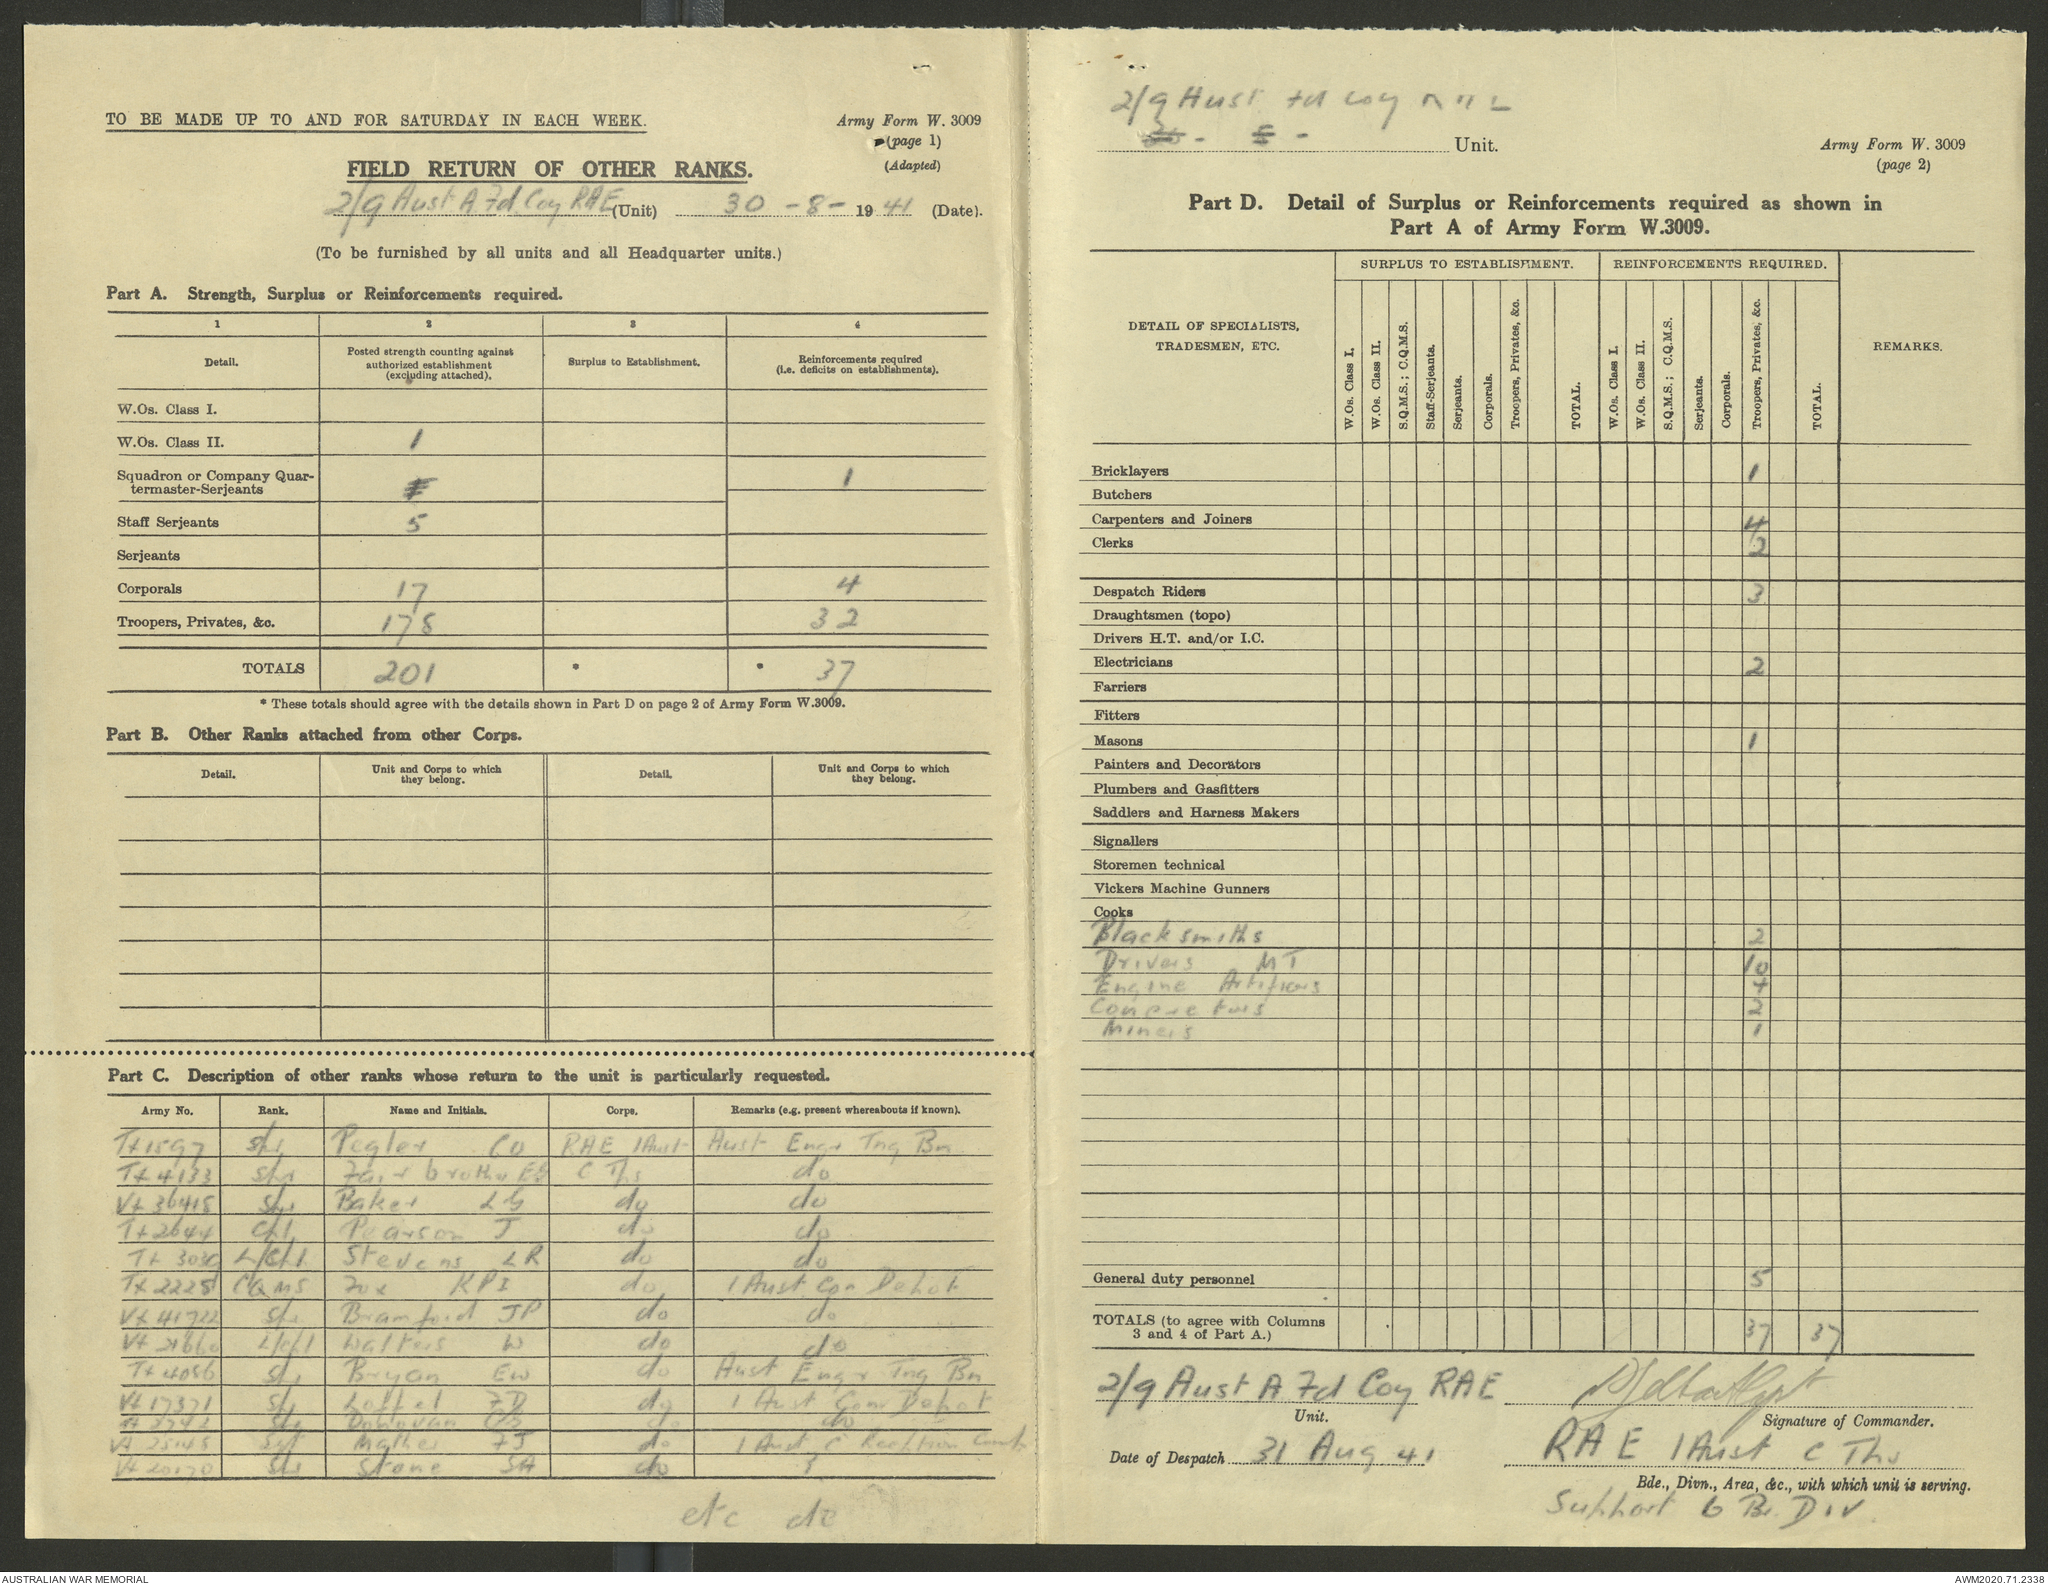 TO BE MADE UP TO AND FOR SATURDAY IN EACH WEEK.
Army Form W. 3009
(page 1)
(Adapted)
FIELD RETURN OF OTHER RANKS.
2/9 Aust A Fd Coy RAE (Unit) 30 -8- 1941 (Date).
(To be furnished by all units and all Headquarter units.)
Part A. Strength, Surplus or Reinforcements required.
1 2 3 4
Detail.
Posted strength counting against authorized establishment (excluding attached).
Surplus to Establishment.
Reinforcements required (i.e. deficits on establishments).
W.Os. Class I.
W.Os. Class II. 1
Squadron or Company Quar-
termaster-Serjeants 1
Staff Serjeants 5
Serjeants
Corporals 17 4
Troopers, Privates, &c. 178 32
TOTALS 201 * * 37
* These totals should agree with the details shown in Part D on page 2 of Army Form W.3009.
Part B. Other Ranks attached from other Corps.
Detail. Unit and Corps to which they belong. Detail. Unit and Corps to which they belong.
Part C. Description of other ranks whose return to the unit is particularly requested.
Army No. Rank. Name and Initials. Corps. Remarks (e.g. present whereabouts if known).
Tx1597 Spr Pegler CO RAE 1Aust Aust Engr Tng Bn
Tx4133 Spr Fairbrother C Tps do
Vx36415 Spr Baker LG do do
Tx2644 Cpl Pearson J do do
Tx 3030 L/Cpl Stevens LR do do
Tx2225 CQMS Fox KPI do 1 Aust Con Depot
Vx41722 Spr Bramford JP do do
L/Cpl Walters W do do
Tx4056 Spr Bryan EW do Aust Engr Tng Bn
Vx17371 Spr FD do 1 Aust Con Depot
Spr Donovan do do
Sgt Mather FJ do 1 Aust C Reception Camp
Spr Stone SA do ?
etc
2/9 Aust Fd Coy
Unit.
Army Form W. 3009
(page 2)
Part D. Detail of Surplus or Reinforcements required as shown in
Part A of Army Form W.3009.
DETAIL OF SPECIALISTS, TRADESMEN, ETC.
SURPLUS TO ESTABLISHMENT.
W.Os. Class I.
W.Os. Class II.
S.Q.M.S.; C.Q.M.S.
Staff-Serjeants.
Serjeants.
Corporals.
Troopers, Privates, &c.
TOTAL.
REINFORCEMENTS REQUIRED.
W.Os. Class I.
W.Os. Class II.
S.Q.M.S.; C.Q.M.S.
Serjeants.
Corporals.
Troopers, Privates, &c.
TOTAL.
REMARKS.
Bricklayers 1
Butchers
Carpenters and Joiners 4
Clerks 2
Despatch Riders 3
Draughtsmen (topo)
Drivers H.T. and/or I.C.
Electricians 2
Farriers
Fitters
Masons 1
Painters and Decorators
Plumbers and Gasfitters
Saddlers and Harness Makers
Signallers
Storemen technical
Vickers Machine Gunners
Cooks
Blacksmiths 2
Drivers MT 10
Engine Artificers 4
Concretors 2
Miners 1
General duty personnel 5
TOTALS (to agree with Columns
3 and 4 of Part A.) 37 37
2/9 Aust A Fd Coy RAE
Unit.
Signature of Commander.
Date of Despatch 31 Aug 41
RAE 1Aust C Tps
Bde., Divn., Area, &c., with which unit is serving.
Support 6 Br. DIV.
AUSTRALIAN WAR MEMORIAL
AWM2020.71.2338